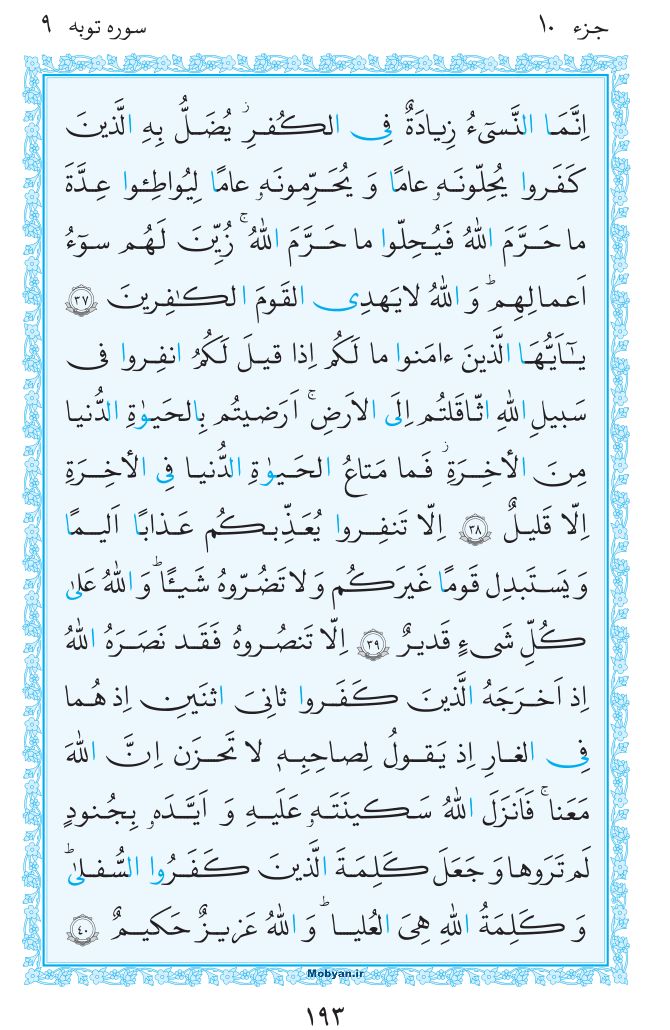 جزء ۱۰
سوره توبه ۹
اِنَّمَا النَّسیٓءُ زِیادَةٌ فِی الکُفرِ ۖ یُضَلُّ بِهِ الَّذینَ
کَفَروا یُحِلّونَهٗ عامًا وَ یُحَرِّمونَهٗ عامًا لِیُواطِئوا عِدَّةَ
ما حَرَّمَ اللهُ فَیُحِلّوا ما حَرَّمَ اللهُ ۚ زُیِّنَ لَهُم سوٓءُ
اَعمالِهِم ۗ وَ اللهُ لایَهدِی القَومَ الکٰفِرینَ ﴿۳۷﴾
یٰٓاَیُّهَا الَّذینَ ءامَنوا ما لَکُم اِذا قیلَ لَکُمُ انفِروا فی
سَبیلِ اللهِ اثّاقَلتُم اِلَی الاَرضِ ۚ اَرَضیتُم بِالحَیوٰةِ الدُّنیا
مِنَ الأخِرَةِ ۚ فَما مَتاعُ الحَیوٰةِ الدُّنیا فِی الأخِرَةِ
اِلّا قَلیلٌ ﴿۳۸﴾ اِلّا تَنفِروا یُعَذِّبکُم عَذابًا اَلیمًا
وَ یَستَبدِل قَومًا غَیرَکُم وَ لا تَضُرّوهُ شَیـًٔا ۗ وَ اللهُ عَلیٰ
کُلِّ شَیءٍ قَدیرٌ ﴿۳۹﴾ اِلّا تَنصُروهُ فَقَد نَصَرَهُ اللهُ
اِذ اَخرَجَهُ الَّذینَ کَفَروا ثانِیَ اثنَینِ اِذ هُما
فِی الغارِ اِذ یَقولُ لِصاحِبِهٖ لا تَحزَن اِنَّ اللهَ
مَعَنا ۖ فَاَنزَلَ اللهُ سَکینَتَهٗ عَلَیهِ وَ اَیَّدَهٗ بِجُنودٍ
لَم تَرَوها وَ جَعَلَ کَلِمَةَ الَّذینَ کَفَرُوا السُّفلیٰ ۗ
وَ کَلِمَةُ اللهِ هِیَ العُلیا ۗ وَ اللهُ عَزیزٌ حَکیمٌ ﴿۴۰﴾
Mobyan.ir
۱۹۳